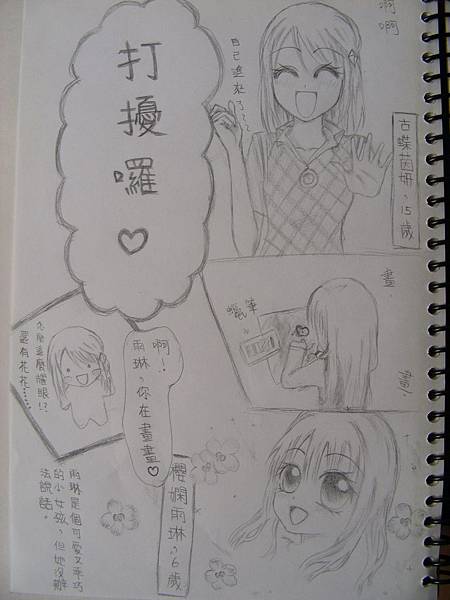 啊啊
打擾囉♡
自己進來了~~
古蝶茵妍、15歲
畫.
畫.
蠟筆
啊!
雨琳、你在畫畫♡
怎麼這麼耀眼!?
還有花花……
櫻嫻雨琳、6歲
雨琳是個可愛又乖巧
的小女孩、但她沒辦
法說話。